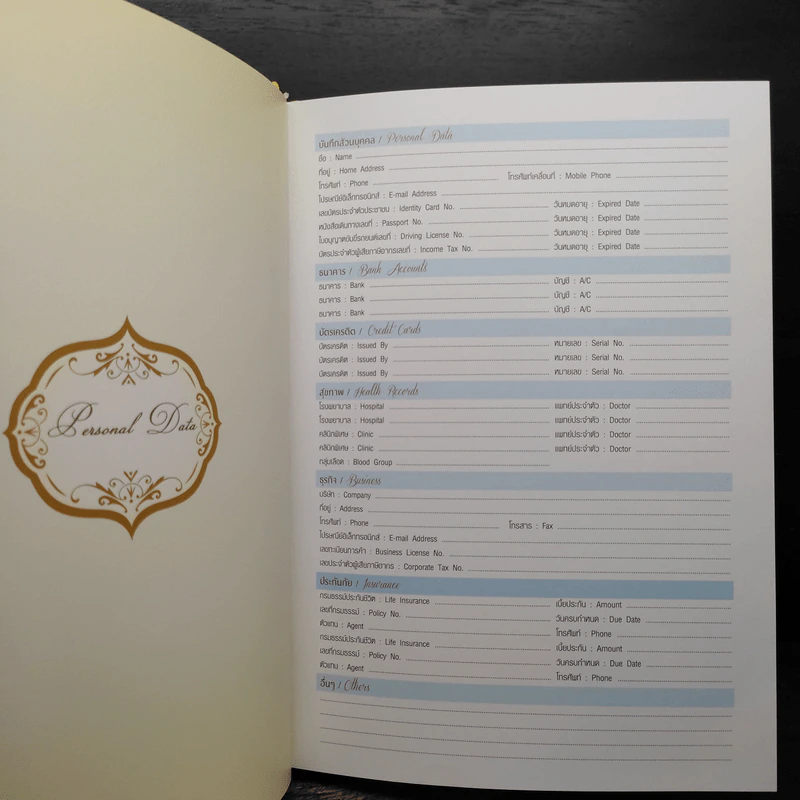 Personal Data
บันทึกส่วนบุคคล / Personal Data
ชื่อ : Name
ที่อยู่ : Home Address
โทรศัพท์ : Phone โทรศัพท์เคลื่อนที่ : Mobile Phone
ไปรษณีย์อิเล็กทรอนิกส์ : E-mail Address
เลขบัตรประจำตัวประชาชน : Identity Card No. วันหมดอายุ : Expired Date
หนังสือเดินทางเลขที่ : Passport No. วันหมดอายุ : Expired Date
ใบอนุญาตขับขี่รถยนต์เลขที่ : Driving License No. วันหมดอายุ : Expired Date
บัตรประจำตัวผู้เสียภาษีอากรเลขที่ : Income Tax No. วันหมดอายุ : Expired Date
ธนาคาร / Bank Accounts
ธนาคาร : Bank บัญชี : A/C
ธนาคาร : Bank บัญชี : A/C
ธนาคาร : Bank บัญชี : A/C
บัตรเครดิต / Credit Cards
บัตรเครดิต : Issued By หมายเลข : Serial No.
บัตรเครดิต : Issued By หมายเลข : Serial No.
บัตรเครดิต : Issued By หมายเลข : Serial No.
สุขภาพ / Health Records
โรงพยาบาล : Hospital แพทย์ประจำตัว : Doctor
โรงพยาบาล : Hospital แพทย์ประจำตัว : Doctor
คลินิกพิเศษ : Clinic แพทย์ประจำตัว : Doctor
คลินิกพิเศษ : Clinic แพทย์ประจำตัว : Doctor
กลุ่มเลือด : Blood Group
ธุรกิจ / Business
บริษัท : Company
ที่อยู่ : Address
โทรศัพท์ : Phone โทรสาร : Fax
ไปรษณีย์อิเล็กทรอนิกส์ : E-mail Address
เลขทะเบียนการค้า : Business License No.
เลขประจำตัวผู้เสียภาษีอากร : Corporate Tax No.
ประกันภัย / Insurance
กรมธรรม์ประกันชีวิต : Life Insurance เบี้ยประกัน : Amount
เลขที่กรมธรรม์ : Policy No. วันครบกำหนด : Due Date
ตัวแทน : Agent โทรศัพท์ : Phone
กรมธรรม์ประกันชีวิต : Life Insurance เบี้ยประกัน : Amount
เลขที่กรมธรรม์ : Policy No. วันครบกำหนด : Due Date
ตัวแทน : Agent โทรศัพท์ : Phone
อื่นๆ / Others